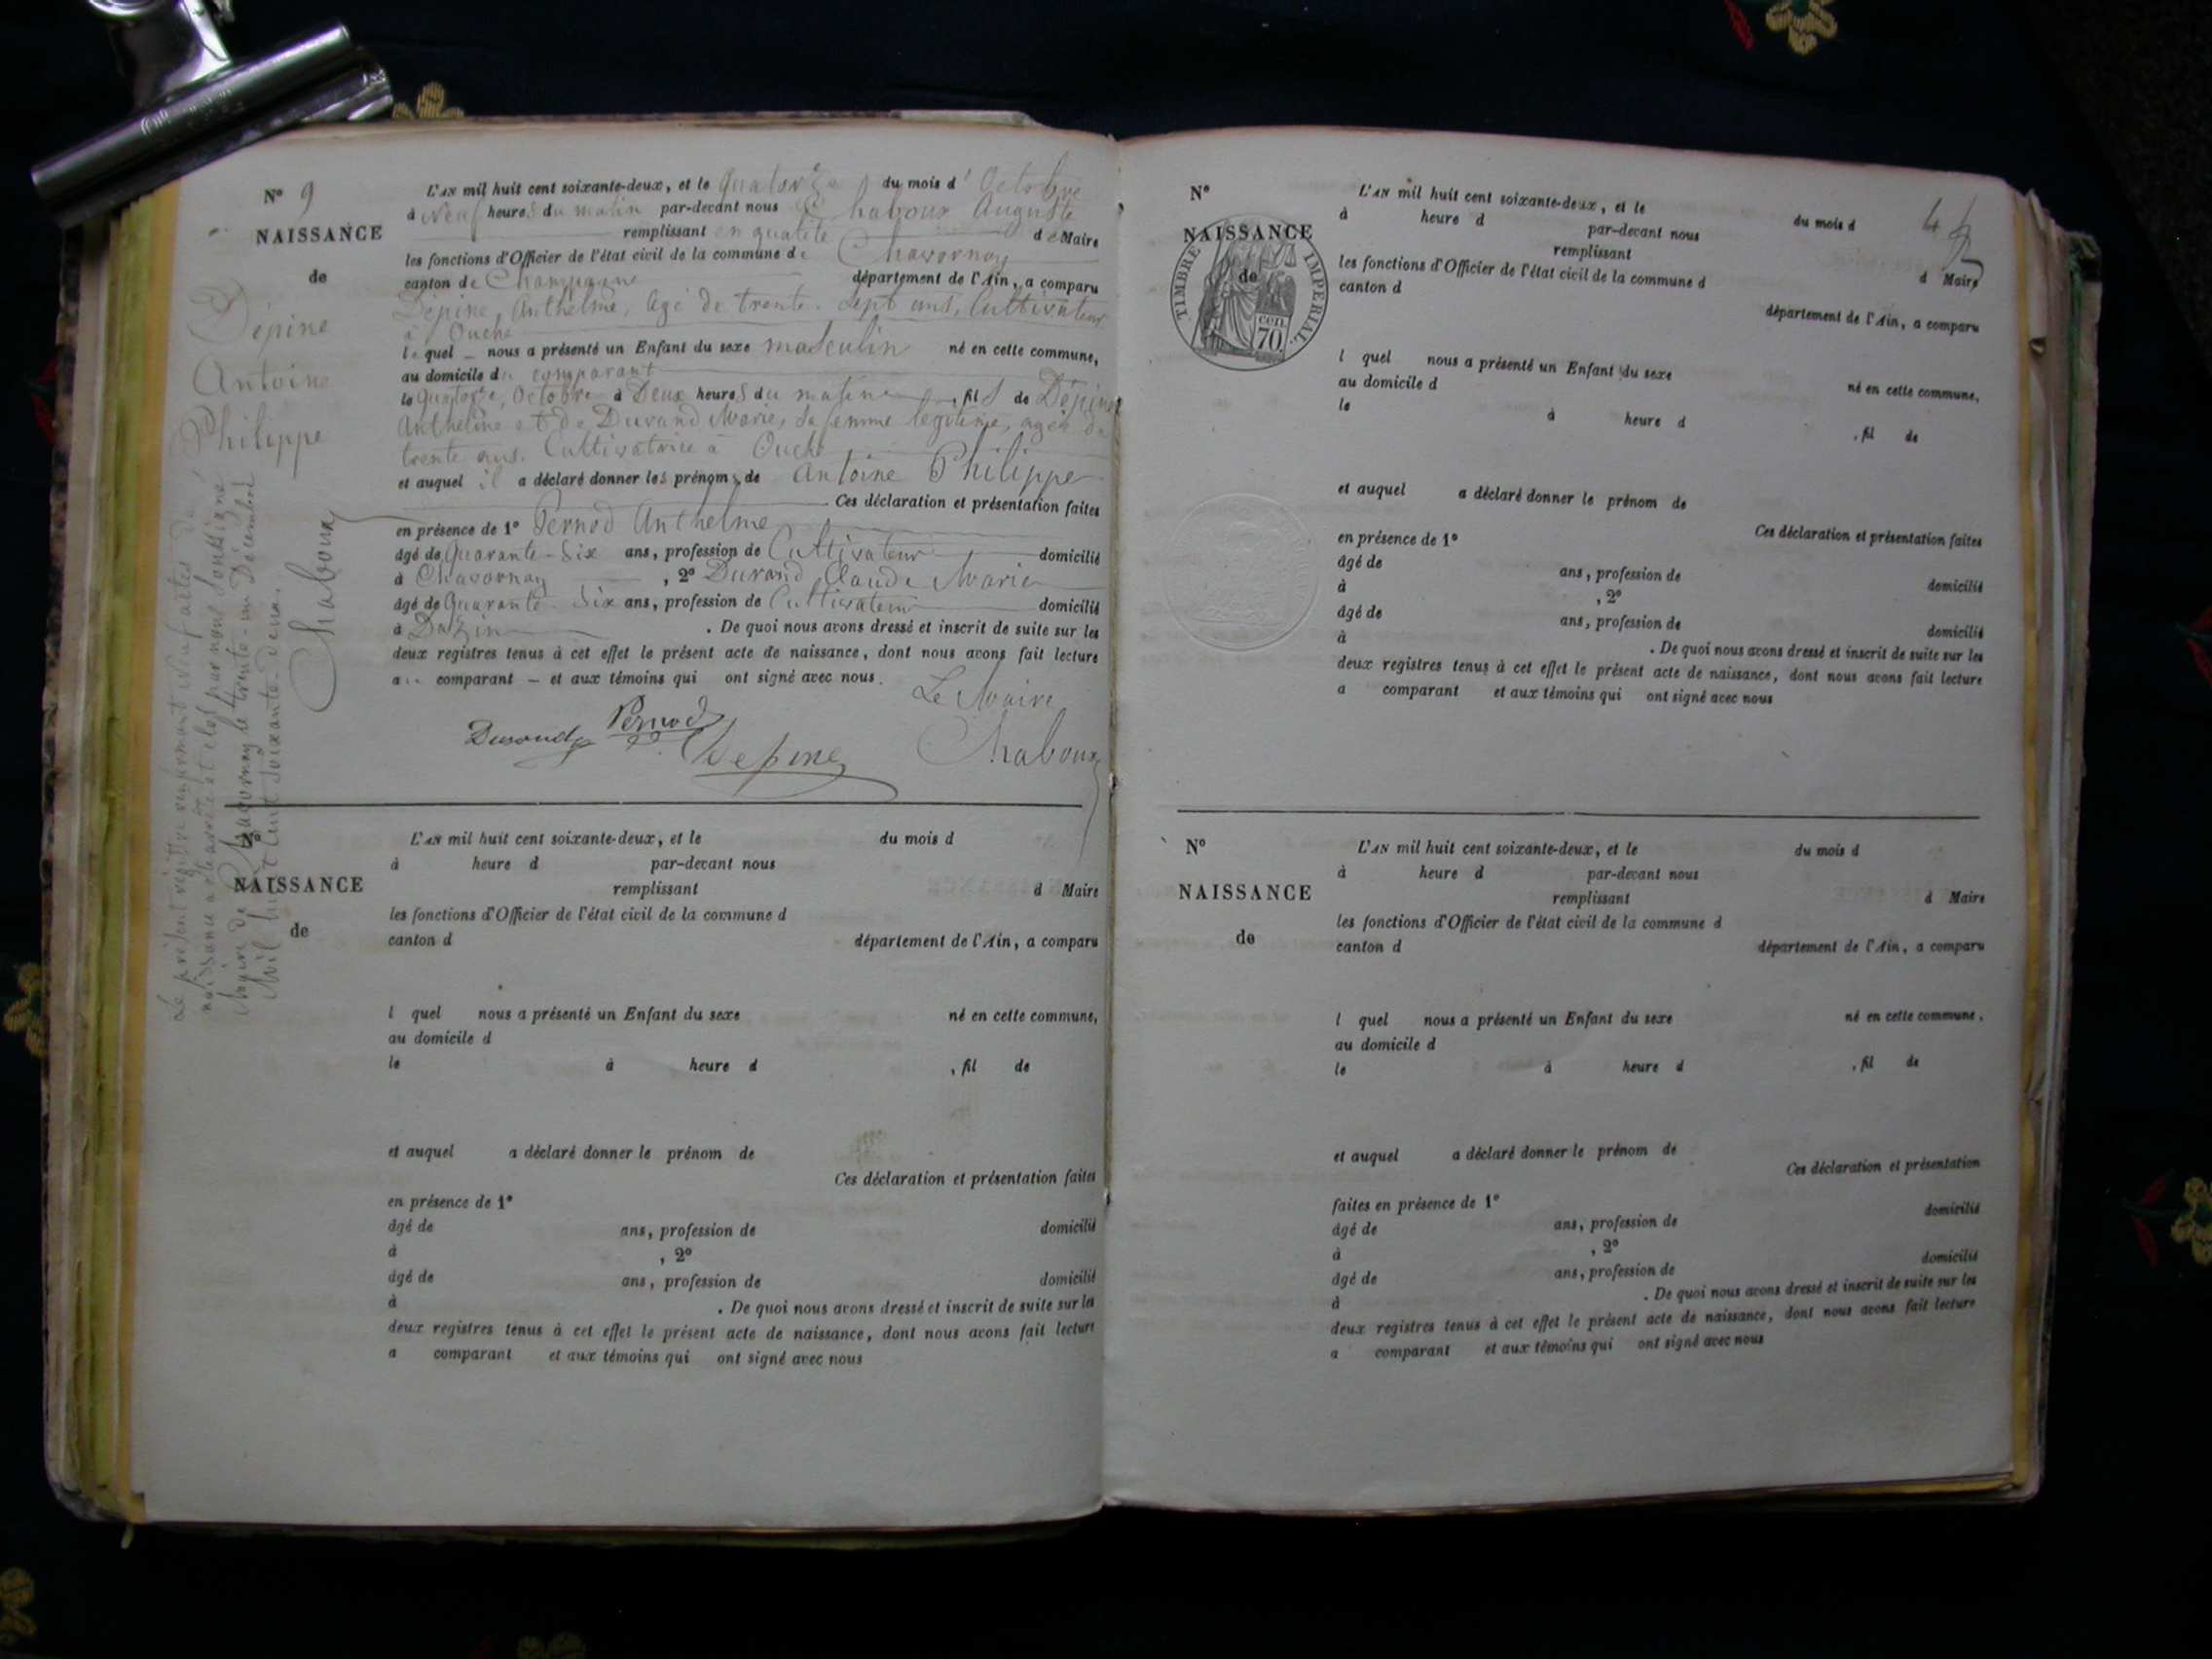 N° 9
NAISSANCE
de
Dépine
Antoine
Philippe
L'AN mil huit cent soixante-deux, et le quatorze du mois d'Octobre
à Neuf heures du matin par-devant nous Chaboux Auguste
remplissant en qualité de Maire
les fonctions d'Officier de l'état civil de la commune de Chavornay
canton de Champagne département de l'Ain, a comparu
Dépine Anthelme, âgé de trente-sept ans, Cultivateur
à Ouche
lequel nous a présenté un Enfant du sexe masculin né en cette commune,
au domicile du comparant
le quatorze Octobre à Deux heures du matin, fils de Dépine
Anthelme et de Durand Marie, sa femme légitime, agée de
trente ans, Cultivatrice à Ouche
et auquel il a déclaré donner les prénoms de Antoine Philippe
Ces déclaration et présentation faites
en présence de 1° Pernod Anthelme
âgé de Quarante-Six ans, profession de Cultivateur domicilié
à Chavornay, 2° Durand Claude Marie
âgé de Quarante-Six ans, profession de Cultivateur domicilié
à Dazin. De quoi nous avons dressé et inscrit de suite sur les
deux registres tenus à cet effet le présent acte de naissance, dont nous avons fait lecture
au comparant – et aux témoins qui ont signé avec nous.
Le Maire
Durand Pernod Depine Chaboux
Le présent registre renfermant neuf actes de
naissance a été arrêté et clos par nous soussigné
Maire de Chavornay le trente-un Décembre
Mil huit cent soixante-deux.
Chaboux
N°
NAISSANCE
de
L'AN mil huit cent soixante-deux, et le du mois d
à heure d par-devant nous
remplissant d Maire
les fonctions d'Officier de l'état civil de la commune d
canton d département de l'Ain, a comparu
l quel nous a présenté un Enfant du sexe né en cette commune,
au domicile d
le à heure d , fil de
et auquel a déclaré donner le prénom de
Ces déclaration et présentation faites
en présence de 1°
âgé de ans, profession de domicilié
à , 2°
âgé de ans, profession de domicilié
à . De quoi nous avons dressé et inscrit de suite sur les
deux registres tenus à cet effet le présent acte de naissance, dont nous avons fait lecture
a comparant et aux témoins qui ont signé avec nous
N°
NAISSANCE
de
TIMBRE IMPERIAL
70 cen.
L'AN mil huit cent soixante-deux, et le du mois d
à heure d par-devant nous
remplissant d Maire
les fonctions d'Officier de l'état civil de la commune d
canton d département de l'Ain, a comparu
l quel nous a présenté un Enfant du sexe né en cette commune,
au domicile d
le à heure d , fil de
et auquel a déclaré donner le prénom de
Ces déclaration et présentation faites
en présence de 1°
âgé de ans, profession de domicilié
à , 2°
âgé de ans, profession de domicilié
à . De quoi nous avons dressé et inscrit de suite sur les
deux registres tenus à cet effet le présent acte de naissance, dont nous avons fait lecture
a comparant et aux témoins qui ont signé avec nous
N°
NAISSANCE
de
L'AN mil huit cent soixante-deux, et le du mois d
à heure d par-devant nous
remplissant d Maire
les fonctions d'Officier de l'état civil de la commune d
canton d département de l'Ain, a comparu
l quel nous a présenté un Enfant du sexe né en cette commune,
au domicile d
le à heure d , fil de
et auquel a déclaré donner le prénom de
Ces déclaration et présentation
faites en présence de 1° domicilié
âgé de ans, profession de
à , 2° domicilié
âgé de ans, profession de
à . De quoi nous avons dressé et inscrit de suite sur les
deux registres tenus à cet effet le présent acte de naissance, dont nous avons fait lecture
a comparant et aux témoins qui ont signé avec nous